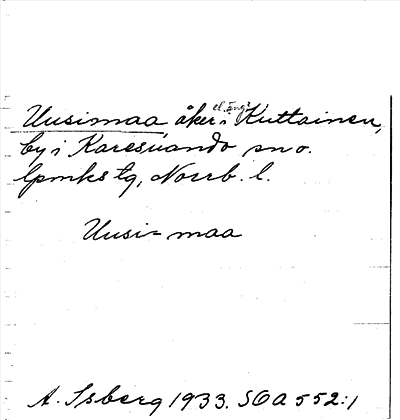 Uusimaa, åker el. äng i Kuttainen,
by i Karesuando sn o.
lpmks tg, Norrb. l.
Uusi-maa
A. Isberg 1933. SOA 552:1